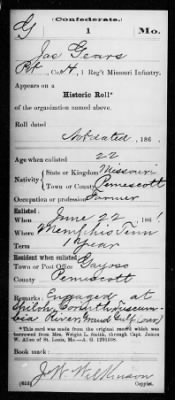 (Confederate.)
G 1 Mo.
Jas Gears
Pvt, Co. H, 1 Reg't Missouri Infantry.
Appears on a
Historic Roll*
of the organization named above.
Roll dated
Not dated, 186 .
Age when enlisted 22
Nativity State or Kingdom Missouri
Town or County Pemescott
Occupation or profession Farmer
Enlisted:
When June 22, 186!
Where Memphis Tenn
1 Year
Resident when enlisted
Town or Post Office Gayoso
County Pemescott
Remarks: Engaged at
Shiloh, Corinth, Tuscum-
bia River, Grand Gulf (over)
*This card was made from the original record which was
borrowed from Mrs. Wright L. Smith, through Capt. James
W. Allen of St. Louis, Mo.
Book mark:
J. W. Wilkinson
Copyist.